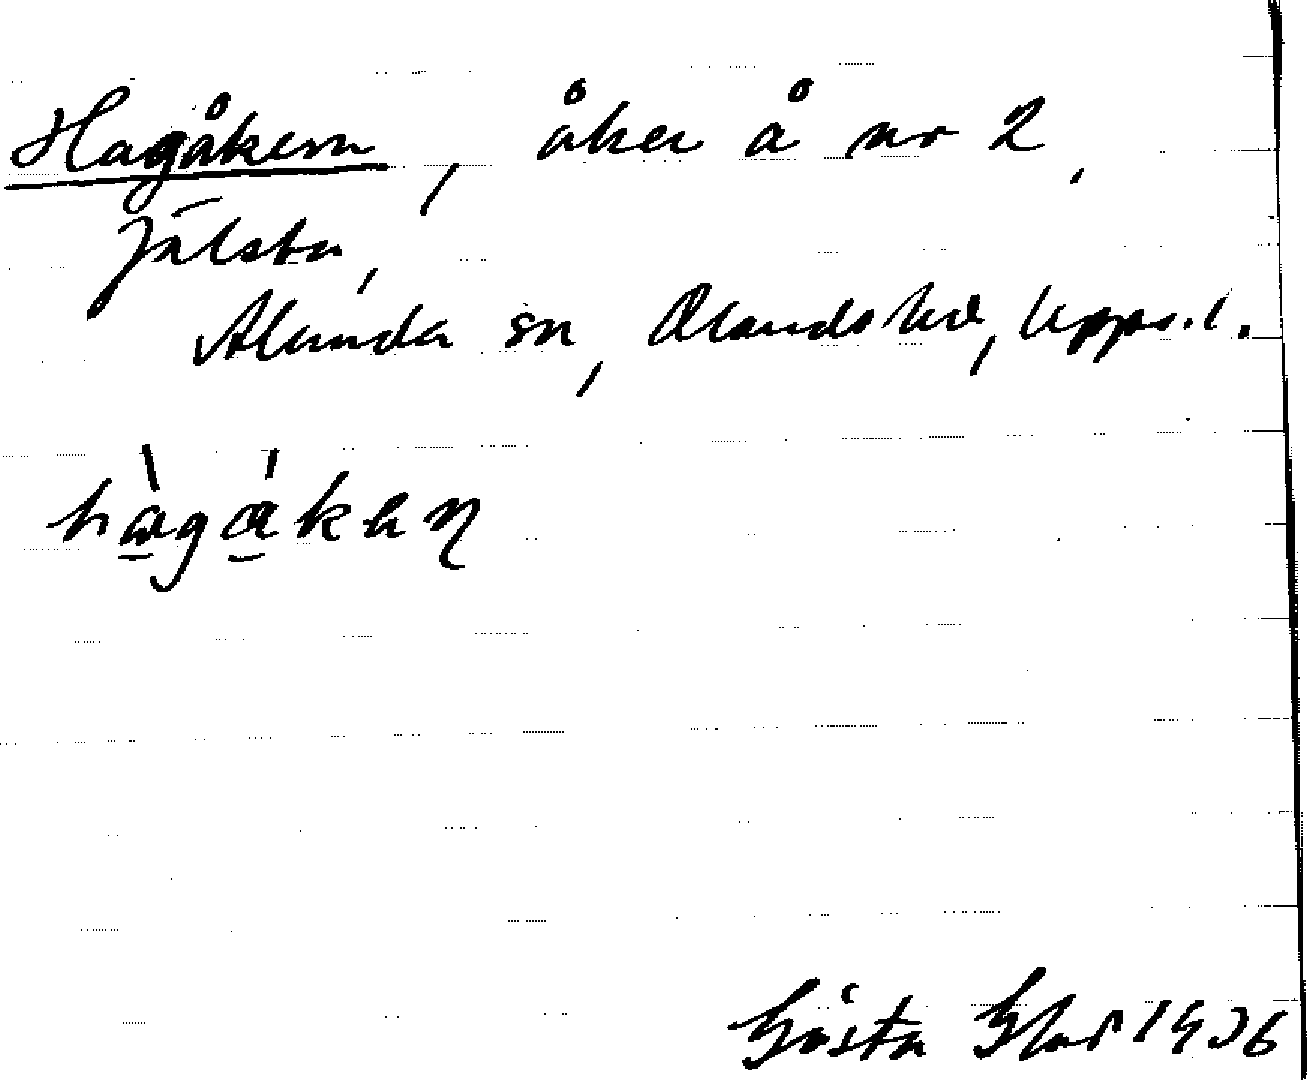 Hagåkern, åker å nr 2,
Jälsta,
Alunda sn, Olands hd, Upps. l.
hàgåkaɳ
Gösta